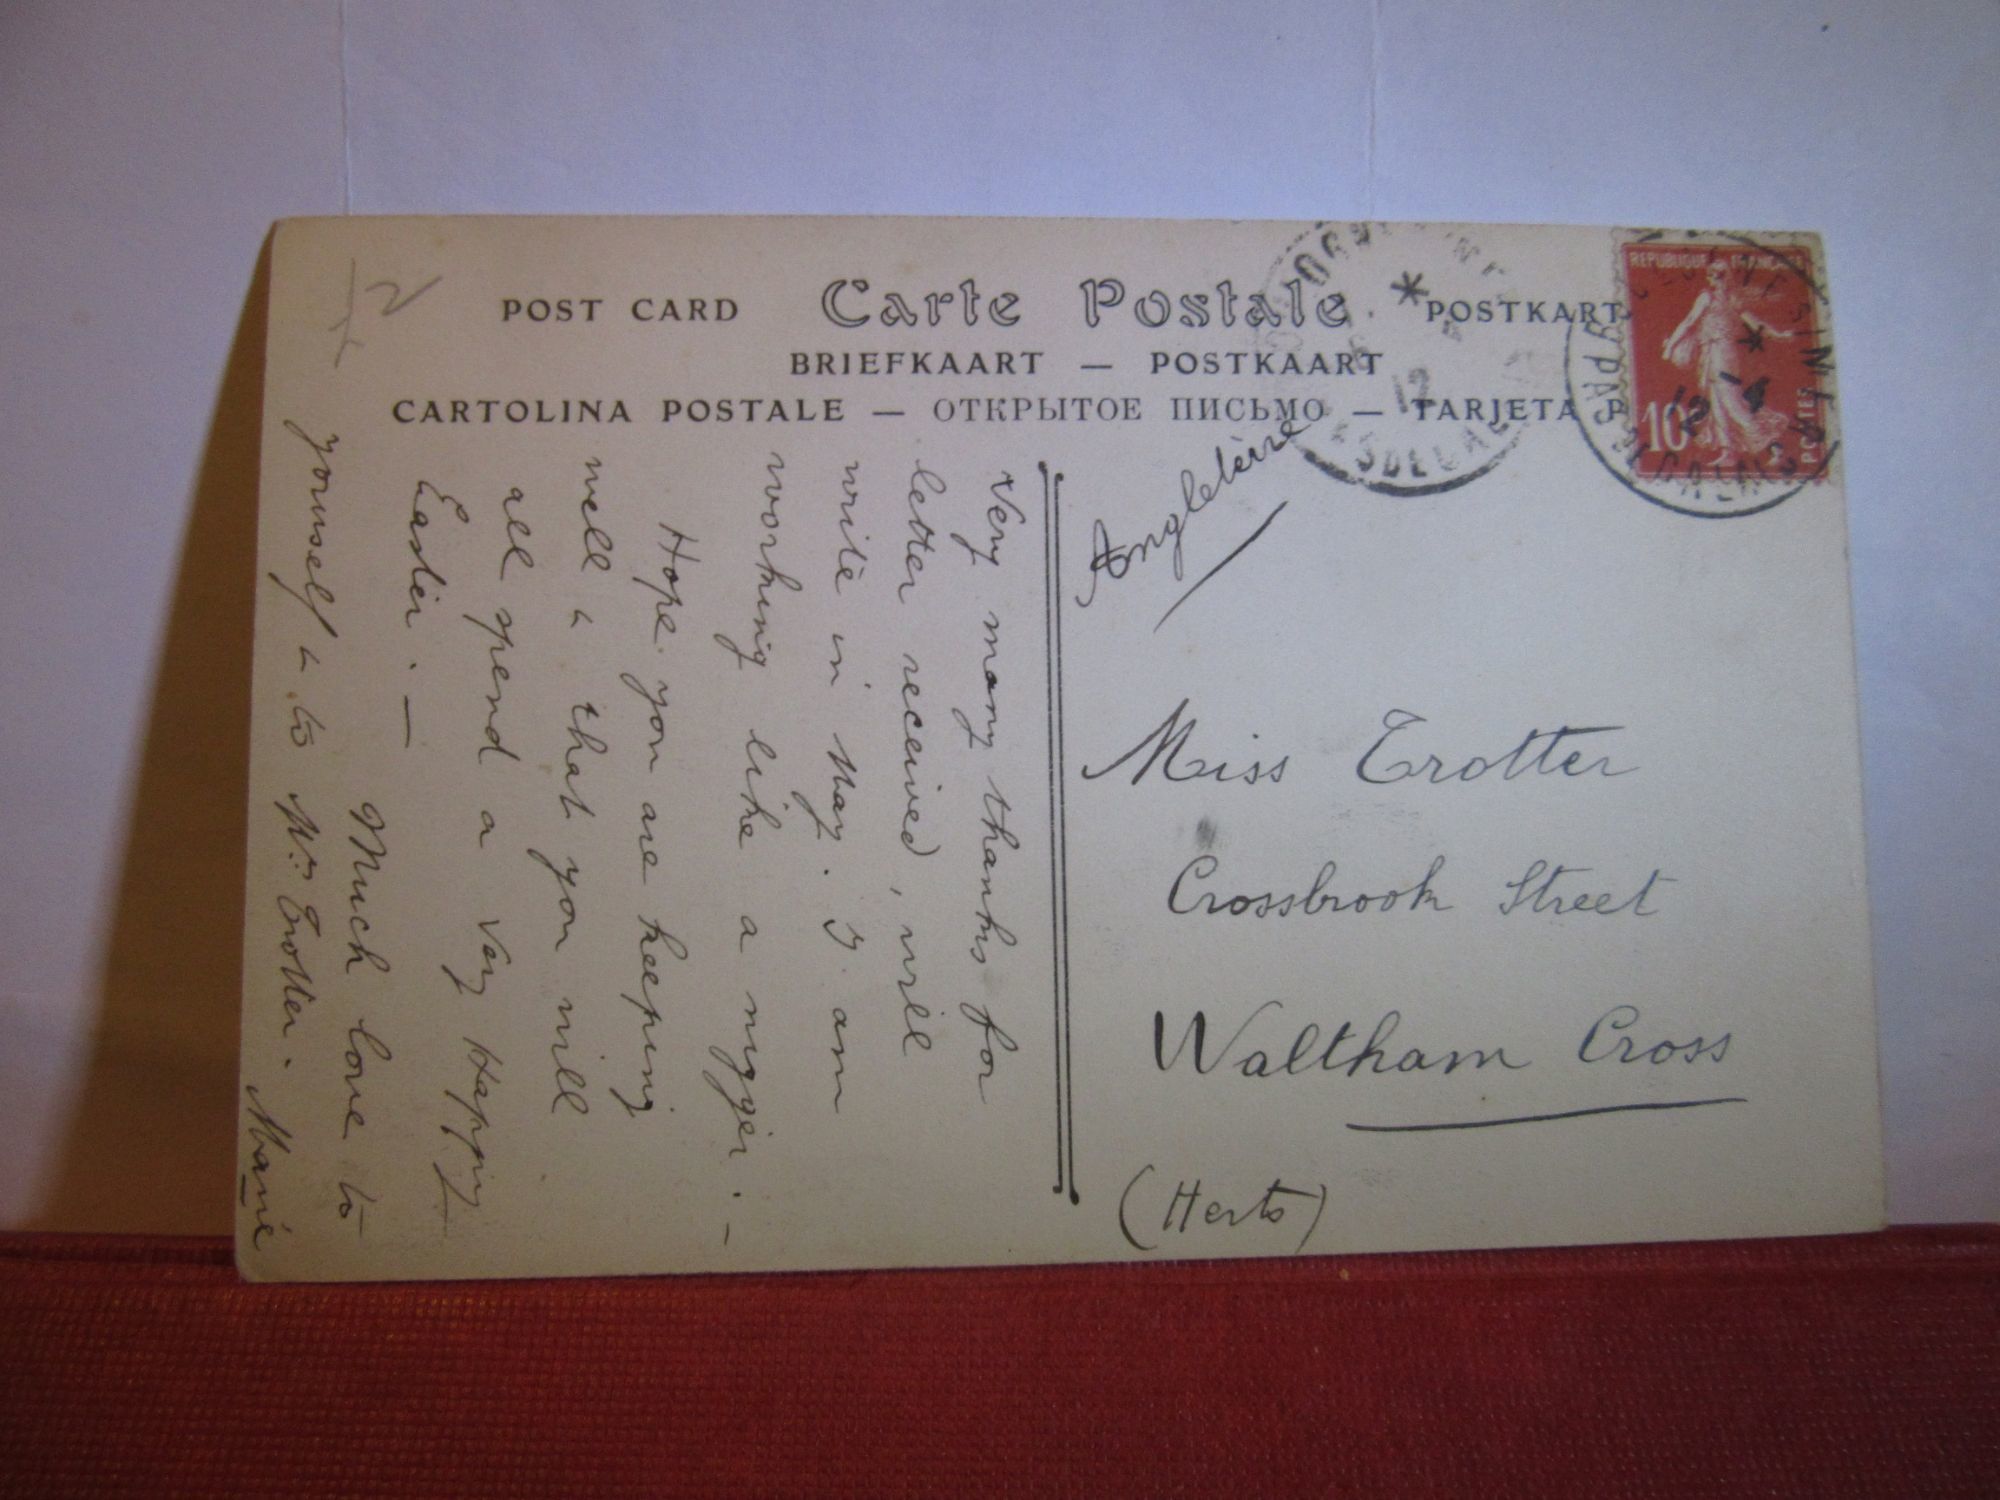 POST CARD Carte Postale POSTKART
BRIEFKAART — POSTKAART
CARTOLINA POSTALE — ОТКРЫТОЕ ПИСЬМО — TARJETA P
REPUBLIQUE FRANÇAISE
10c
POSTES
12
12 -4
PAS DE CALAIS
Angleterre
Miss Trotter
Crossbrook Street
Waltham Cross
(Herts)
Very many thanks for
letter received, will
write in May. I am
working like a nigger. —
Hope you are keeping
well & that you will
all spend a very Happy
Easter. —
Much love to
yourself & to Mrs Trotter. Mamé